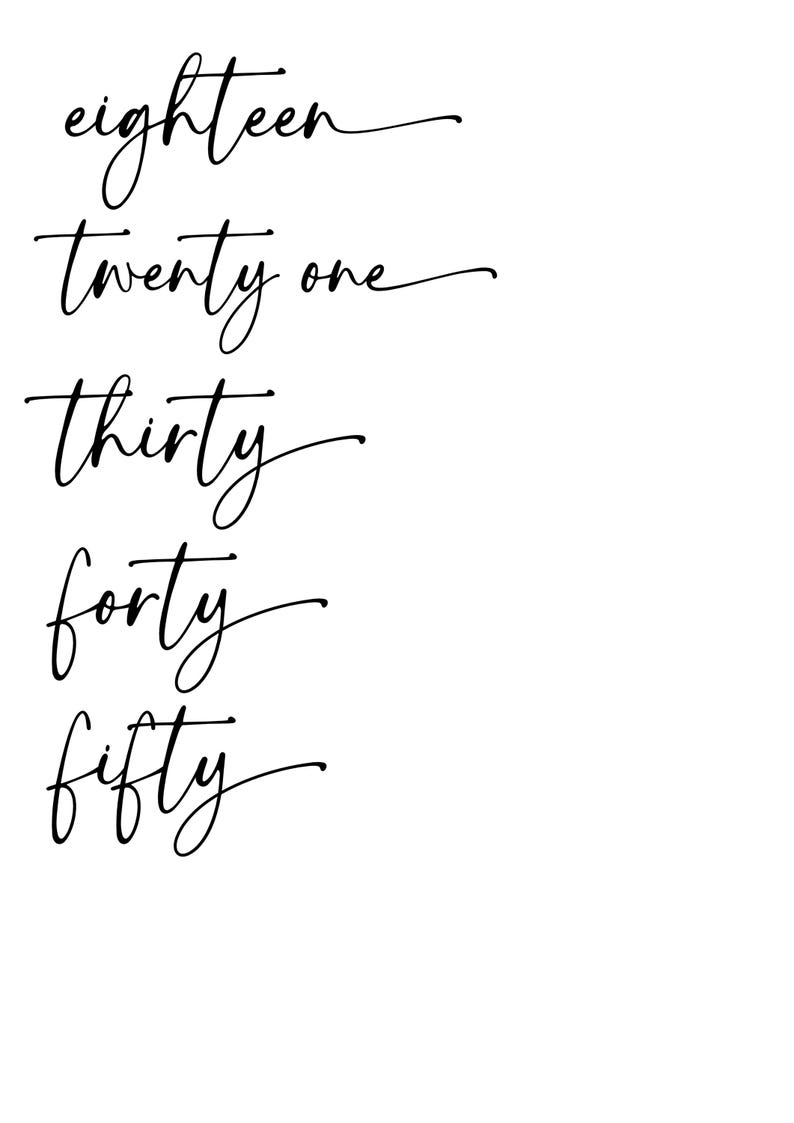 eighteen
twenty one
thirty
forty
fifty